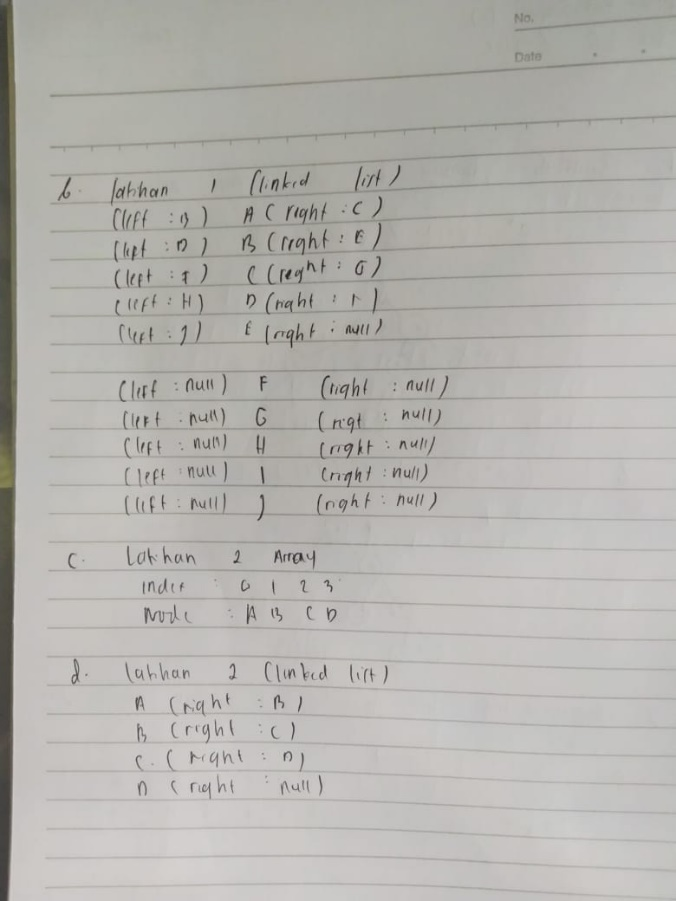 No.
Date
b. latihan 1 (linked list)
(left : B) A (right : C)
(left : D) B (right : E)
(left : F) C (reght : G)
(left : H) D (right : I)
(left : J) E (right : null)
(left : null) F (right : null)
(left : null) G (rigt : null)
(left : null) H (right : null)
(left : null) I (right : null)
(left : null) J (right : null)
c. Latihan 2 Array
index : 0 1 2 3
Node : A B C D
d. latihan 2 (linked list)
A (right : B)
B (right : C)
C. (right : D)
D (right : null)